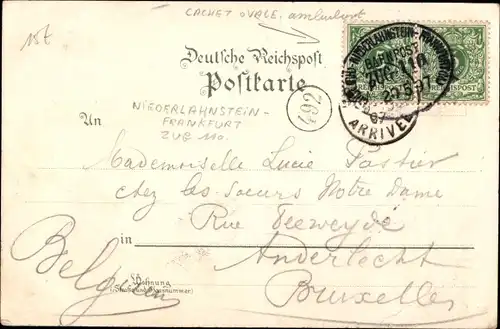 CACHET OVALE. ambulant
15t
Deutsche Reichspost
Postkarte
NIEDERLAHNSTEIN-
FRANKFURT
ZUG 110.
492
NIEDERLAHNSTEIN-FRANKFURT
BAHNPOST
ZUG 110
20.5.97
REICHSPOST
97
ARRIVEE
An
Mademoiselle Lucie Pastier
chez les soeurs Notre Dame
Rue Veeweyde
in
Anderlecht
Bruxelles
Belgien
Wohnung
(Straße und Hausnummer)